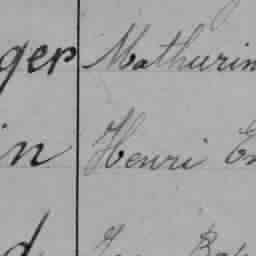 ger Mathurin
in Henri E
d